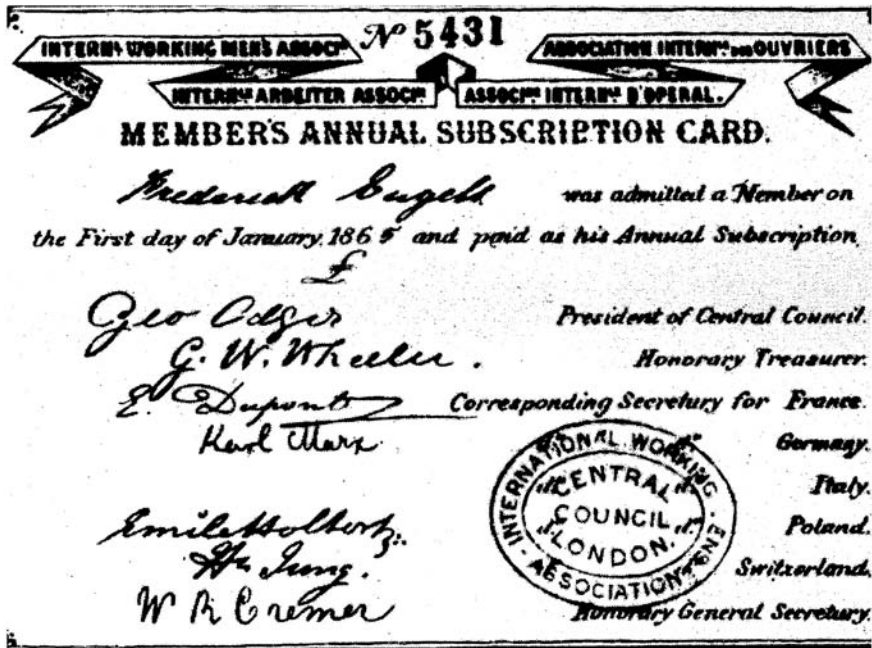 Nº 5431
INTERNL WORKING MEN'S ASSOCN
ASSOCIATION INTERNLE DES OUVRIERS
INTERNLE ARBEITER ASSOCN
ASSOCNE INTERNLE D'OPERAI.
MEMBER'S ANNUAL SUBSCRIPTION CARD.
Frederick Engels was admitted a Member on
the First day of January, 1865 and paid as his Annual Subscription
£
Geo Odger President of Central Council.
G. W. Wheeler. Honorary Treasurer.
E. Dupont Corresponding Secretary for France.
Karl Marx Germany.
Italy.
Emile Holtorp Poland.
Hn Jung. Switzerland.
W R Cremer Honorary General Secretary.
INTERNATIONAL WORKING MENS ASSOCIATION
CENTRAL
COUNCIL
LONDON.